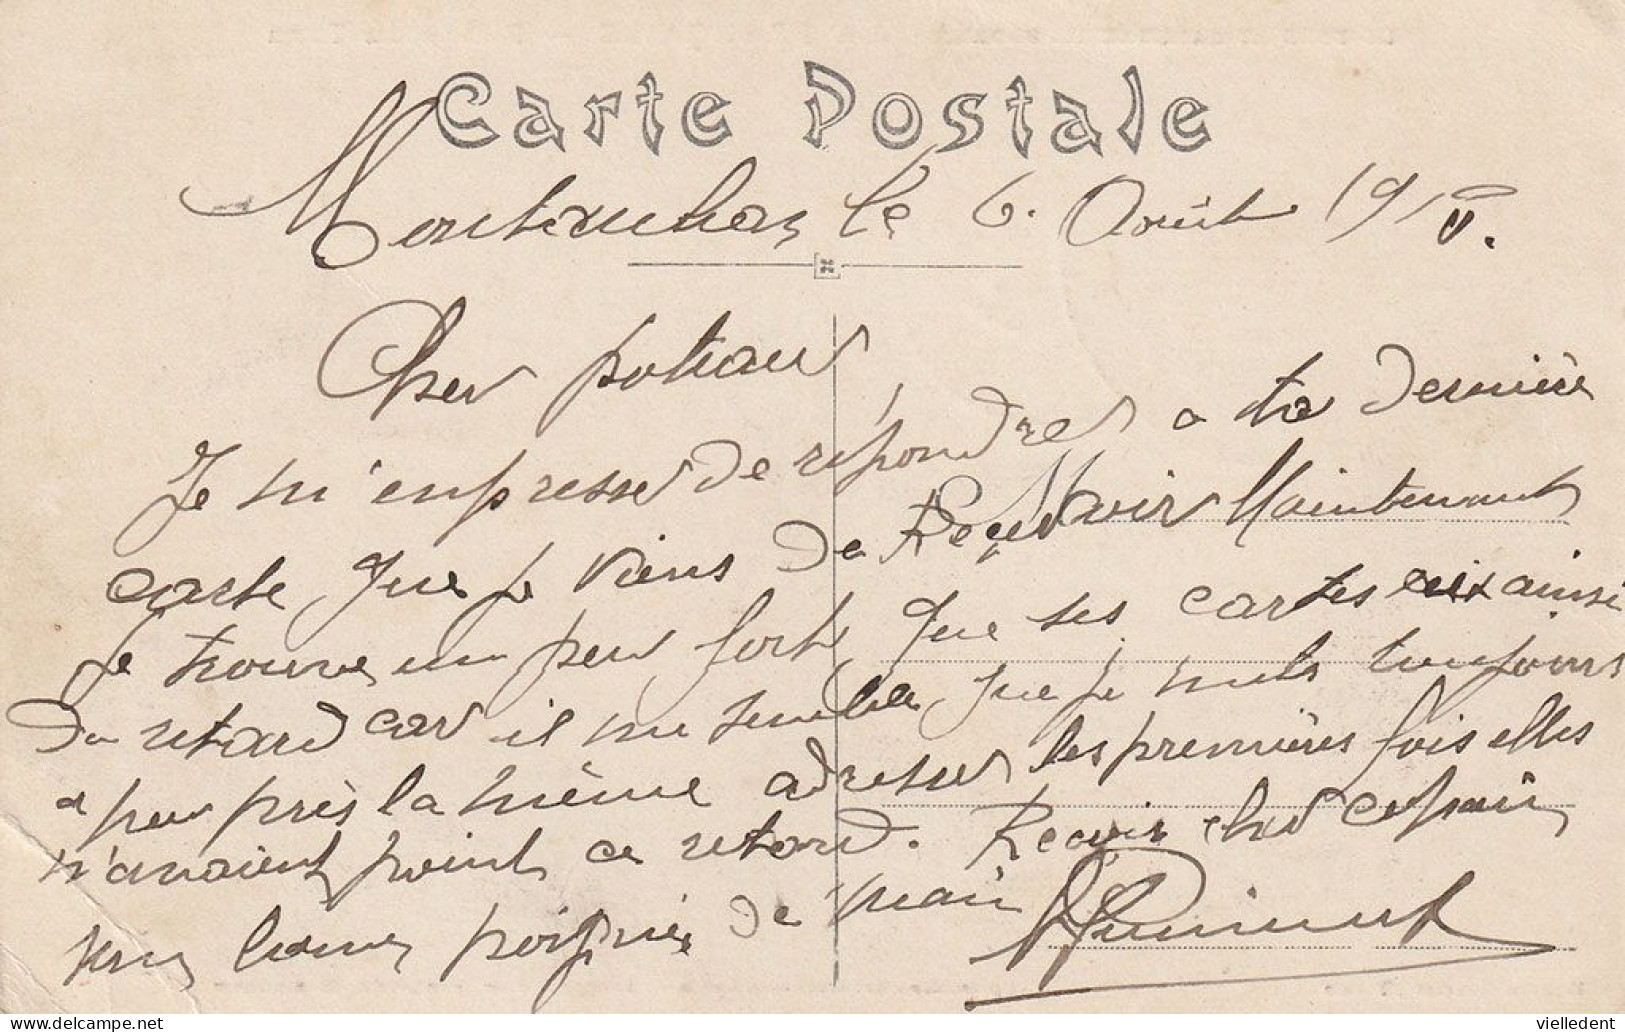 Carte Postale
Montauban le 6. Août 19
Cher poteau
Je m'empresse de répondres a ta dernière
carte que je viens de Reçevoir Maintenant
Je trouve un peu fort que ses cartes ainsi
du retard car il me semble que je mets toujours
a peu près la même adresse les premières fois elles
n'avaient point ce retard. Reçois cher copain
une bonne poignée de main
vielledent